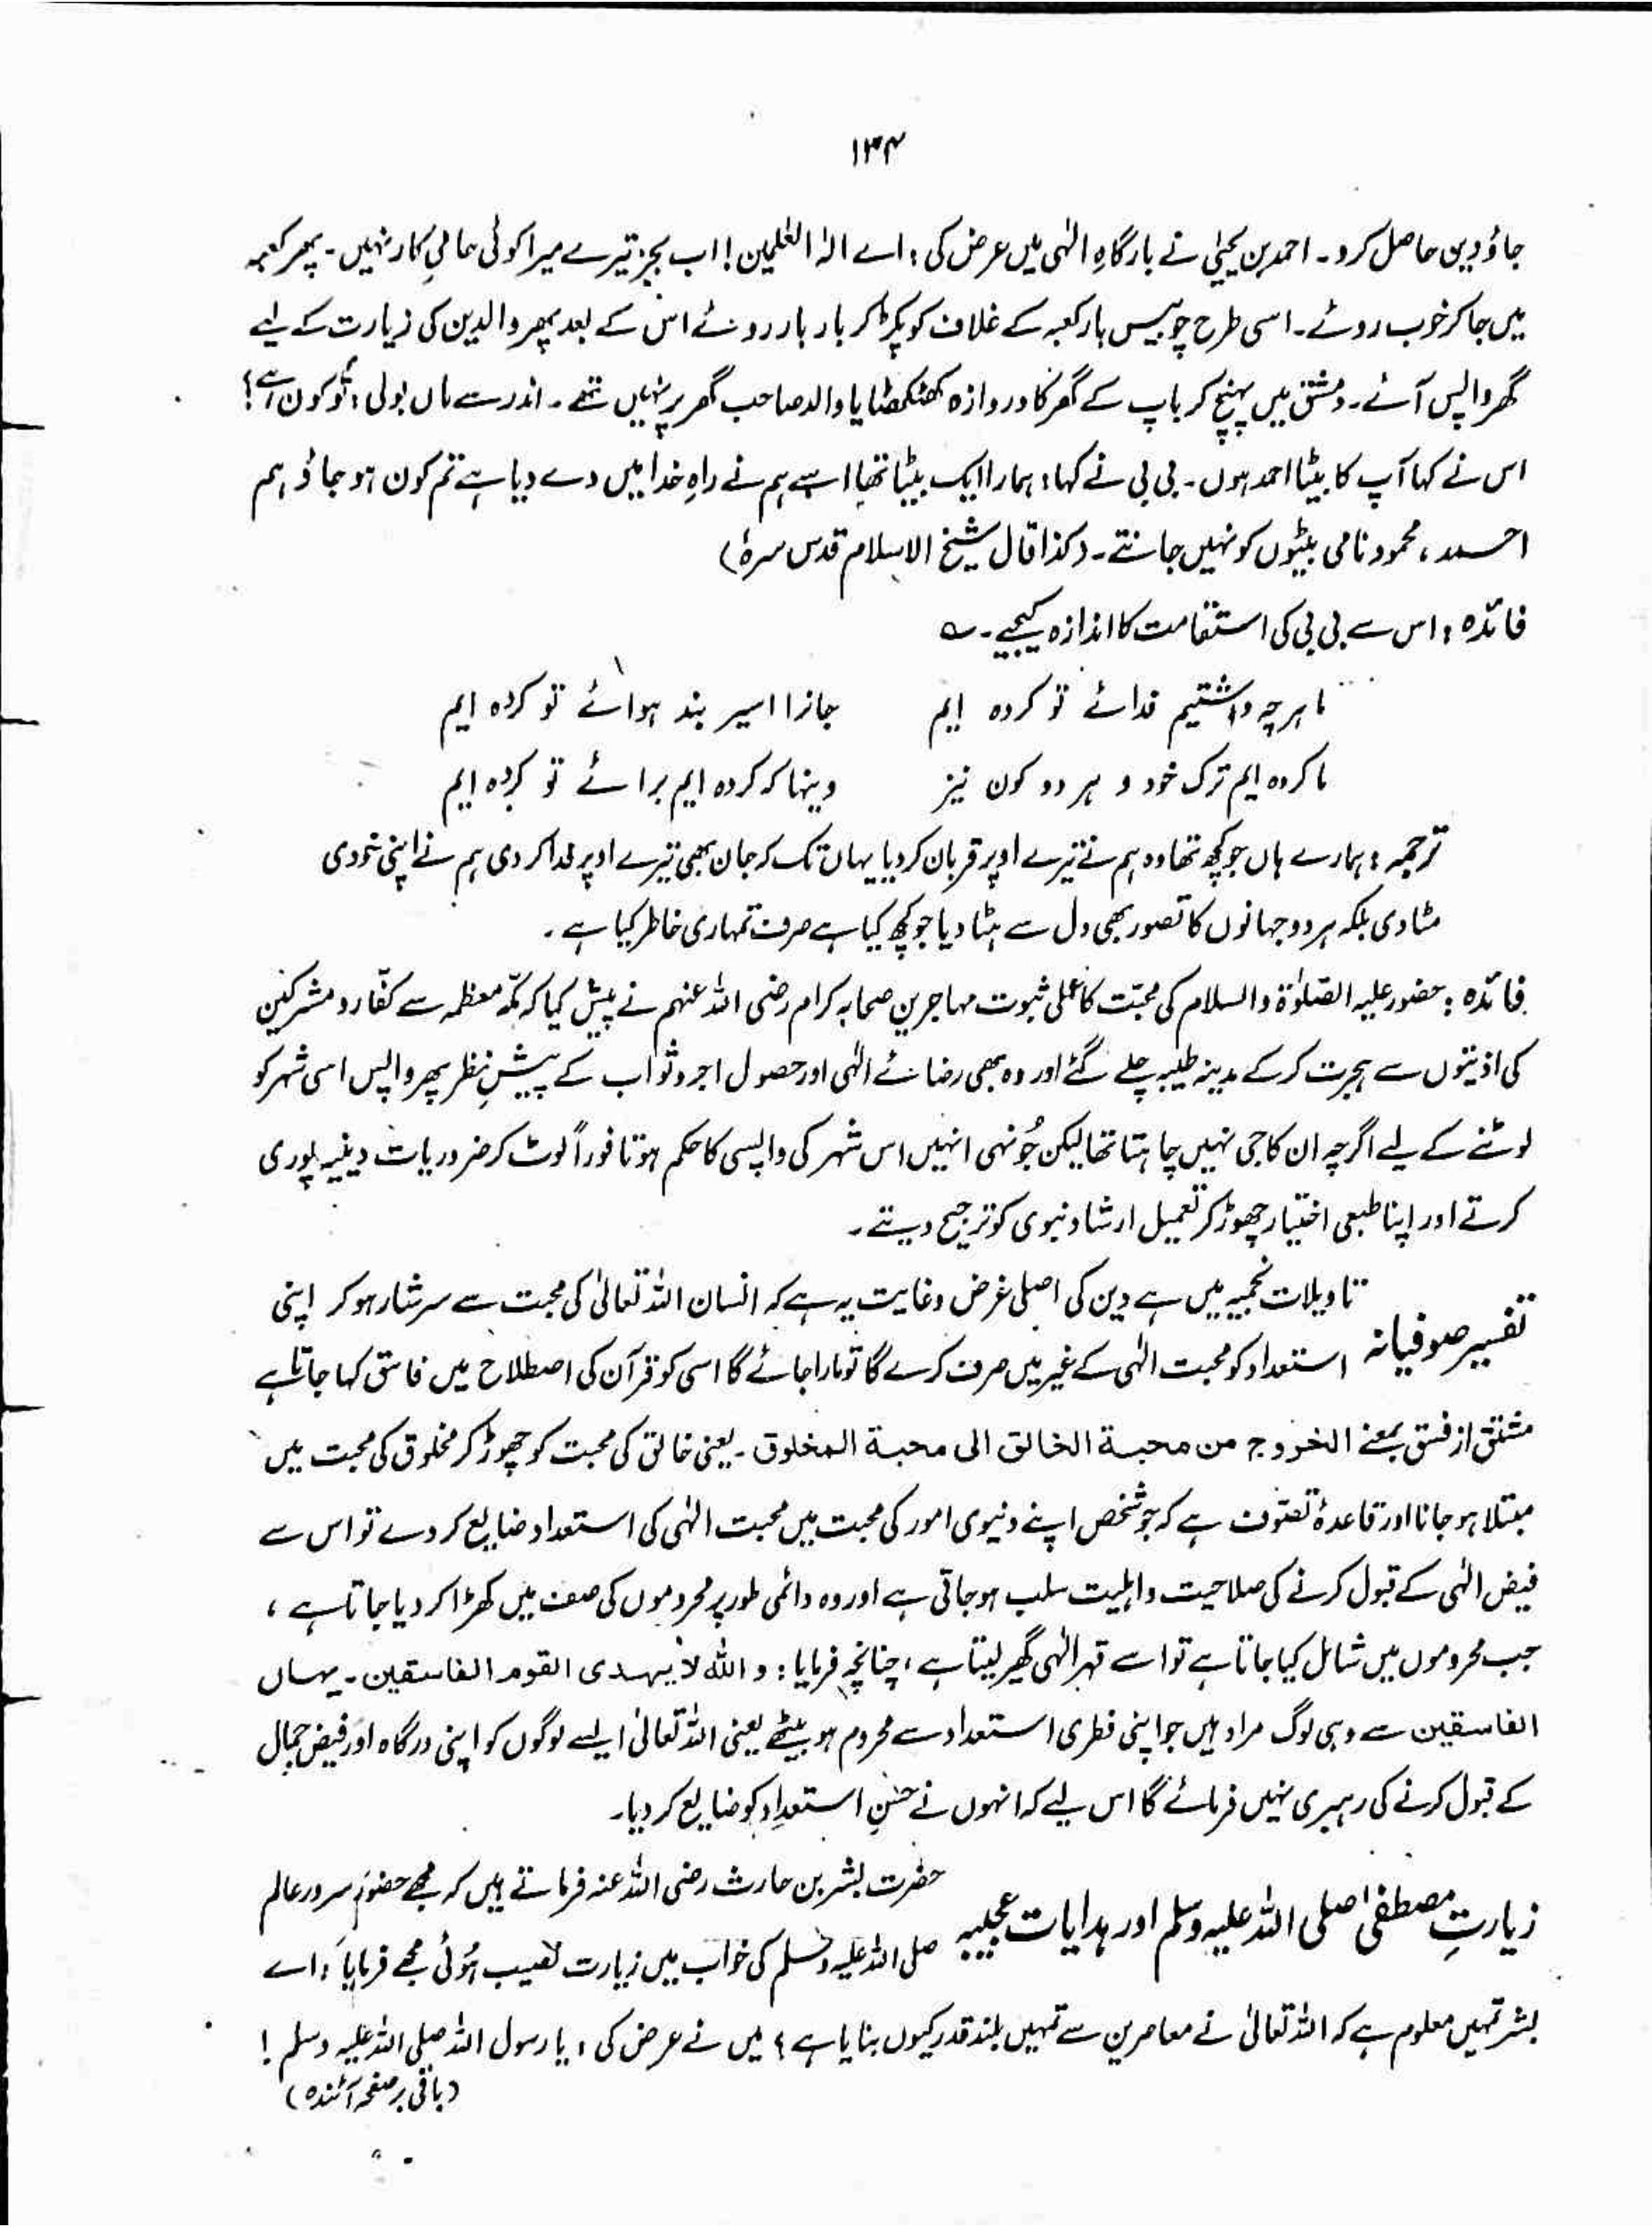 ۱۳۴
جاؤ دین حاصل کرو۔ احمد بن یحیٰی نے بارگاہِ الٰہی میں عرض کی: اے الٰہ العٰلمین! اب بجز تیرے میرا کوئی حامیِ کار نہیں۔ پھر کعبہ
میں جا کر خوب روئے۔ اسی طرح چوبیس بار کعبہ کے غلاف کو پکڑ کر بار بار روئے اس کے بعد پھر والدین کی زیارت کے لیے
گھر واپس آئے۔ دمشق میں پہنچ کر باپ کے گھر کا دروازہ کھٹکھٹایا والد صاحب گھر پر نہیں تھے۔ اندر سے ماں بولی: تُو کون ہے؟
اس نے کہا آپ کا بیٹا احمد ہوں۔ بی بی نے کہا: ہمارا ایک بیٹا تھا اسے ہم نے راہِ خدا میں دے دیا ہے تم کون ہو جاؤ ہم
احمد، محمود نامی بیٹوں کو نہیں جانتے۔ (کذا قال شیخ الاسلام قدس سرہٗ)
فائدہ: اس سے بی بی کی استقامت کا اندازہ کیجیے۔ ؎
ما ہرچہ داشتیم فدائے تو کردہ ایم جانرا اسیر بند ہوائے تو کردہ ایم
ما کردہ ایم ترک خود و ہر دو کون نیز وینہا کہ کردہ ایم برائے تو کردہ ایم
ترجمہ: ہمارے ہاں جو کچھ تھا وہ ہم نے تیرے اوپر قربان کر دیا یہاں تک کہ جان بھی تیرے اوپر فدا کر دی ہم نے اپنی خودی
مٹا دی بلکہ ہر دو جہانوں کا تصور بھی دل سے ہٹا دیا جو کچھ کیا ہے صرف تمہاری خاطر کیا ہے۔
فائدہ: حضور علیہ الصّلوٰۃ والسلام کی محبّت کا عملی ثبوت مہاجرین صحابہ کرام رضی اللہ عنہم نے پیش کیا کہ مکّہ معظمہ سے کفّار و مشرکین
کی اذیتوں سے ہجرت کر کے مدینہ طیبہ چلے گئے اور وہ بھی رضائے الٰہی اور حصول اجر و ثواب کے پیشِ نظر پھر واپس اسی شہر کو
لوٹنے کے لیے اگرچہ ان کا جی نہیں چاہتا تھا لیکن جُونہی انہیں اس شہر کی واپسی کا حکم ہوتا فوراً لوٹ کر ضروریات دینیہ پوری
کرتے اور اپنا طبعی اختیار چھوڑ کر تعمیل ارشاد نبوی کو ترجیح دیتے۔
تفسیر صوفیانہ تاویلات نجمیہ میں ہے دین کی اصلی غرض و غایت یہ ہے کہ انسان اللہ تعالیٰ کی محبت سے سرشار ہو کر اپنی
استعداد کو محبت الٰہی کے غیر میں صرف کرے گا تو مارا جائے گا اسی کو قرآن کی اصطلاح میں فاسق کہا جاتا ہے
مشتق از فسق بمعنے الخروج من محبة الخالق الی محبة المخلوق۔ یعنی خالق کی محبت کو چھوڑ کر مخلوق کی محبت میں
مبتلا ہو جانا اور قاعدۂ تصوّف ہے کہ جو شخص اپنے دنیوی امور کی محبت میں محبت الٰہی کی استعداد ضایع کر دے تو اس سے
فیض الٰہی کے قبول کرنے کی صلاحیت و اہلیت سلب ہو جاتی ہے اور وہ دائمی طور پر محروموں کی صف میں کھڑا کر دیا جاتا ہے،
جب محروموں میں شامل کیا جاتا ہے تو اسے قہر الٰہی گھیر لیتا ہے، چنانچہ فرمایا: و اللہ لا یہدی القوم الفاسقین۔ یہاں
الفاسقین سے وہی لوگ مراد ہیں جو اپنی فطری استعداد سے محروم ہو بیٹھے یعنی اللہ تعالیٰ ایسے لوگوں کو اپنی درگاہ اور فیض جمال
کے قبول کرنے کی رہبری نہیں فرمائے گا اس لیے کہ انہوں نے حسنِ استعداد کو ضایع کر دیا۔
زیارتِ مصطفیٰ صلی اللہ علیہ وسلم اور ہدایات عجیبہ حضرت بشر بن حارث رضی اللہ عنہ فرماتے ہیں کہ مجھے حضور سرور عالم
صلی اللہ علیہ وسلم کی خواب میں زیارت نصیب ہُوئی مجھے فرمایا: اے
بشر تمہیں معلوم ہے کہ اللہ تعالیٰ نے معاصرین سے تمہیں بلند قدر کیوں بنایا ہے؟ میں نے عرض کی: یا رسول اللہ صلی اللہ علیہ وسلم!
(باقی بر صفحہ آئندہ)